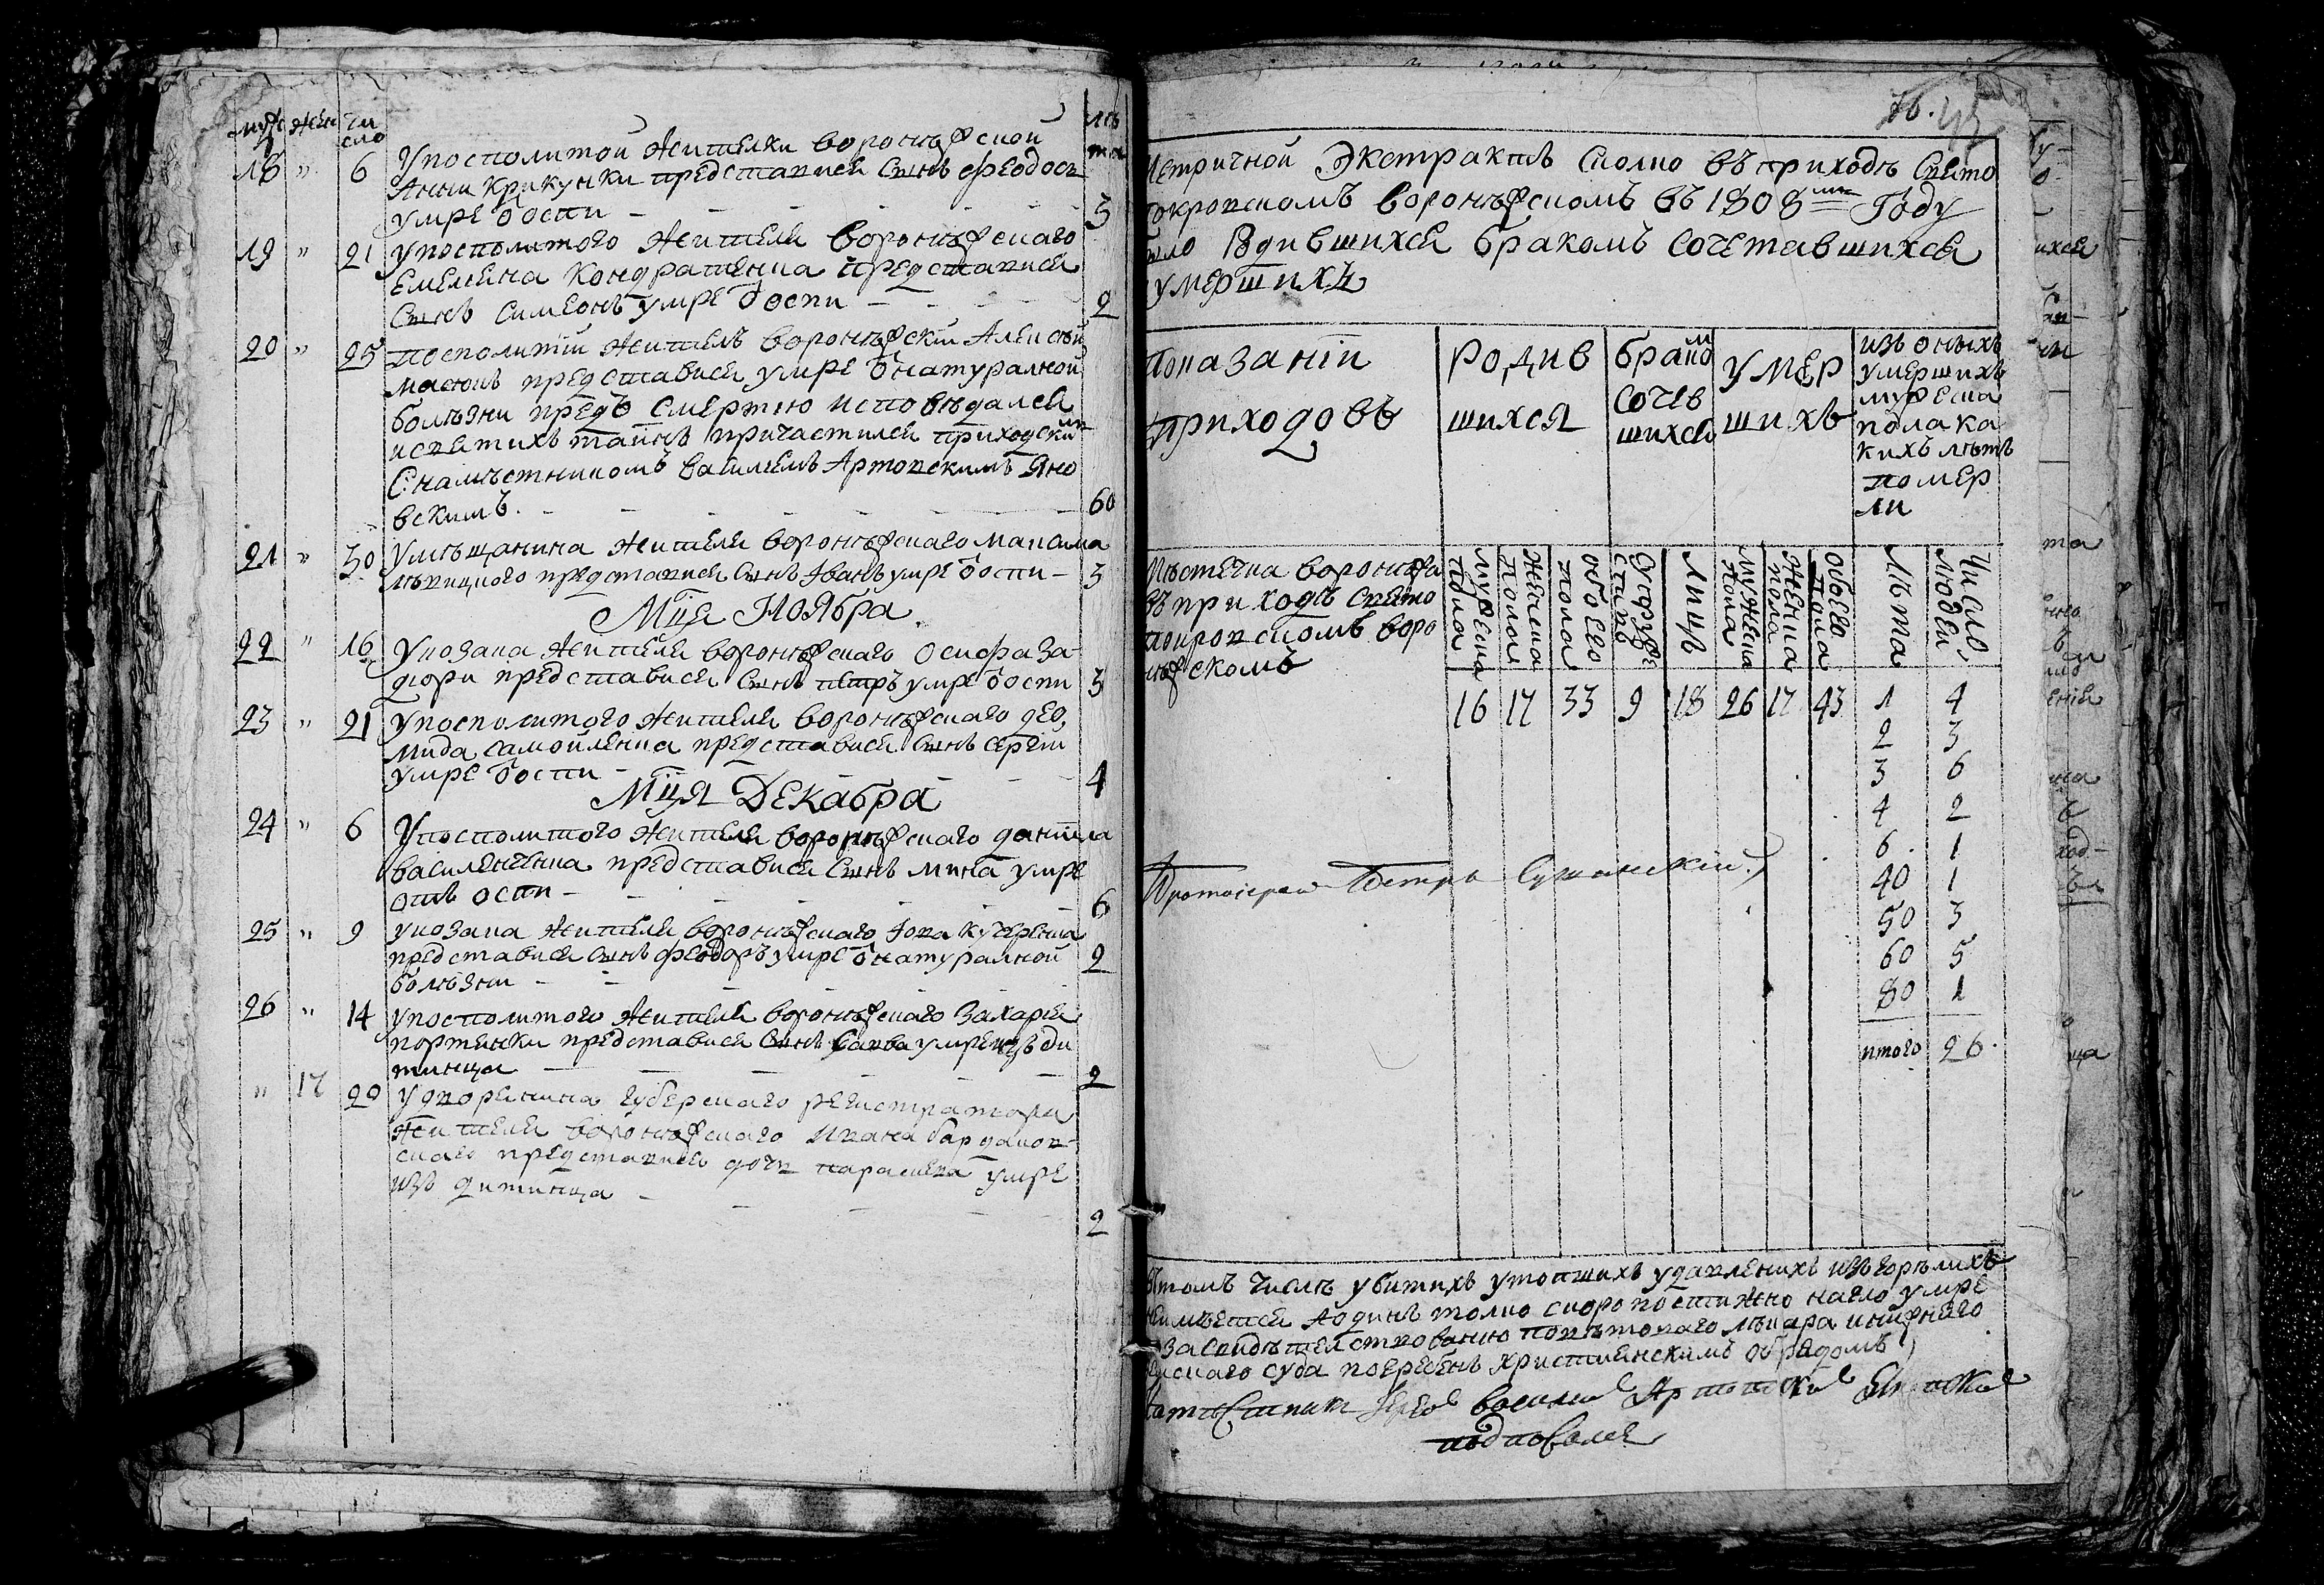 муж жен чи
сло
лѣ
та
18 " 6 Упосполитой жителки воронѣжской
Анны Крикунки представися Сынъ феодосъ
умре ѿ оспи 3
19 " 21 упосполитого жителя воронѣжскаго
Емелияна Кондратенка представися
Сынъ Симеонъ умре ѿ оспи 2
20 " 25 посполитій житель воронѣжскій Алексѣй
представися умре ѿ натуралной
болѣзни предъ смертию исповѣдался
исвятихъ таинъ причастился приходским
Снамѣстникомъ Василиемъ Артовскимъ Яно
вскимъ. 60
21 " 30 Умѣщанина жителя воронѣжскаго Максима
представися Сынъ Іванъ умре ѿ оспи 3
Мца Ноября.
22 " 16 Укозака жителя воронѣжскаго Осифа За
дори представися Сынъ петръ умре ѿ оспи 3
23 " 21 упосполитого жителя воронѣжскаго део,
мида самойленка представися Сынъ сергій
умре ѿ оспи 4
Мця Декабра
24 " 6 Упосполитого жителя воронѣжскаго даніила
василенченка представися Сынъ мина умре
отъ оспи 6
25 " 9 укозака жителя воронѣжскаго Іова кучеренка
представися Сынъ феодоръ умре ѿ натуралной
болѣзни 2
26 " 14 упосполитого жителя воронѣжскаго Захарія
портянки представися Сынъ Савва умре изъ ди
тинца 2
" 17 20 У дворянина губерскаго регистратора
жителя воронѣжскаго Ивана бардаков
скаго представися дочь параскева умре
изъ дитинца 2
76.
Метричной Экстрактъ Сколко въ приходѣ Свято
покровскомъ воронѣжскомъ въ 1808мъ Году
было Родившихся бракомъ Сочетавшихся
умершихъ
Показаніи
приходовъ
Родив
шихся
бракомъ
сочев
шихся
умер
шихъ
изъ оныхъ
умершихъ
мужеска
пола ка
кихъ лѣтъ
помер
ли
Мѣстечка воронѣжа
въ приходѣ Свято
покровскомъ воро
нѣжскомъ
мужеска пола
женска пола
обоего пола
Супружествъ
Лицъ
мужеска пола
женска пола
обоего пола
Лѣта
Число людей
16 17 33 9 18 26 17 43 1 4
2 3
3 6
4 2
6 1
40 1
50 3
60 5
80 1
итого 26.
Протоіерей Петръ
Втомъ числѣ убитихъ утопшихъ удавленихъ изгорѣлихъ
неимѣется Аодинъ толко скоропостижно нагло умре
позасвидѣтелствованию повѣтоваго лѣкара инижнего
земскаго суда погребенъ християнскимъ обрядомъ
Намѣстникъ Іерей Василий Артовскій Яновскій
подписался